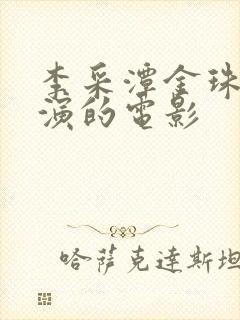 李采潭金珠
演的電影
哈薩克達斯坦